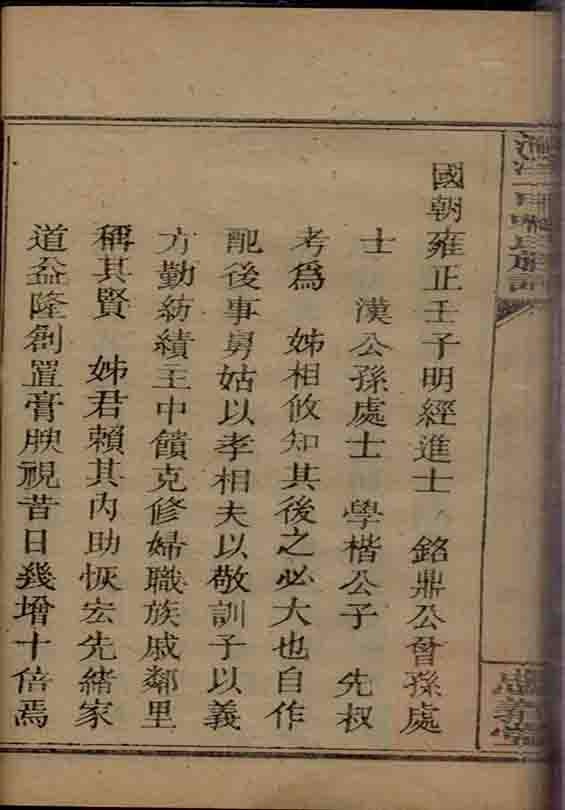 國朝雍正壬子明經進士 銘鼎公曾孫處
士 漢公孫處士 學楷公子 先叔
考爲 姊相攸知其後之必大也自作
配後事舅姑以孝相夫以敬訓子以義
方勤紡績主中饋克修婦職族戚鄰里
稱其賢 姊君賴其內助恢宏先緒家
道益隆創置膏腴視昔日幾增十倍焉